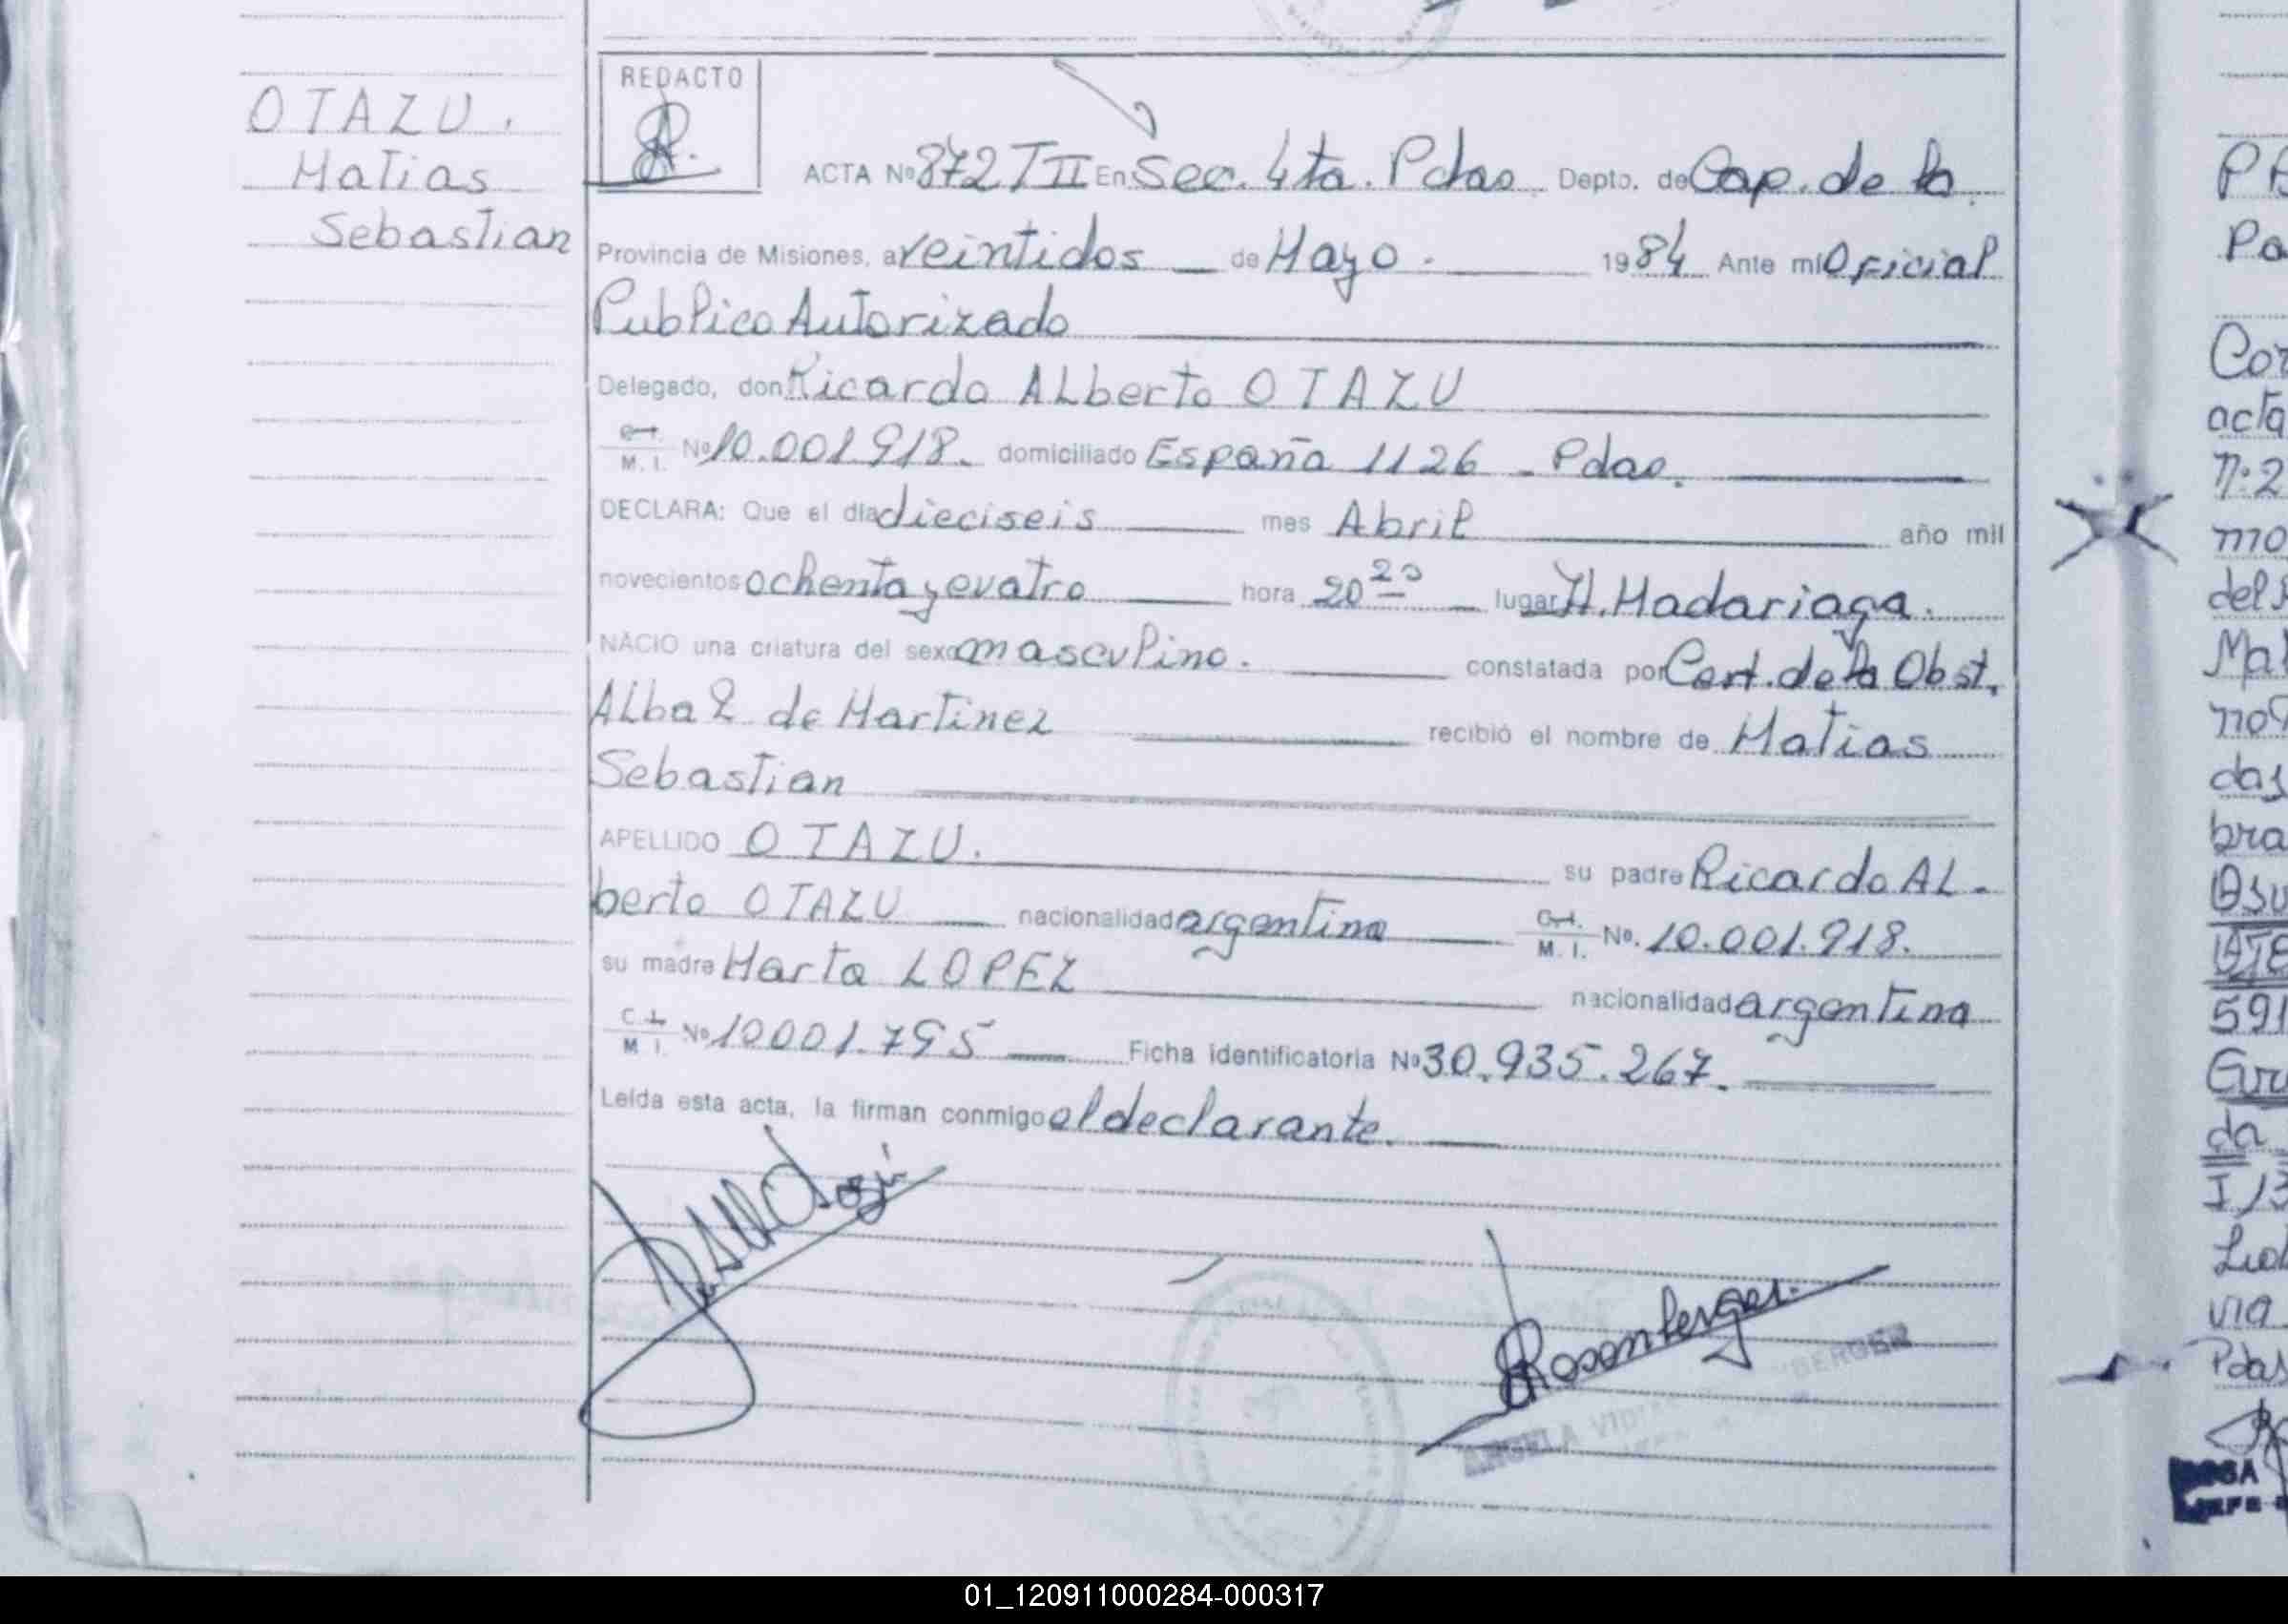 OTAZU.
Matias
Sebastian
REDACTO
ACTA Nº 872 T II En Sec. 4ta. Pdas. Depto. de Cap. de la
Provincia de Misiones, a veintidos de Mayo. 1984 Ante mí Oficial
Publico Autorizado
Delegado, don Ricardo Alberto OTAZU
M. I. Nº 10.001.918. domiciliado España 1126 - Pdas.
DECLARA: Que el día dieciseis mes Abril año mil
novecientos ochenta y cuatro hora 20 20 lugar H. Madariaga.
NACIO una criatura del sexo masculino. constatada por Cert. de la Obst.
Alba de Martinez recibió el nombre de Matias
Sebastian
APELLIDO OTAZU. su padre Ricardo Al-
berto OTAZU nacionalidad argentina M. I. Nº. 10.001.918.
su madre Marta LOPEZ nacionalidad argentina
C. I. M. I. Nº 10001.795 Ficha identificatoria Nº 30.935.267.
Leída esta acta, la firman conmigo el declarante.
Rosenberger.
ANGELA
Cor
acta
n.2
mo
del
Ma
no
das
bra
Osu
591
da
via
Pdas
01_120911000284-000317